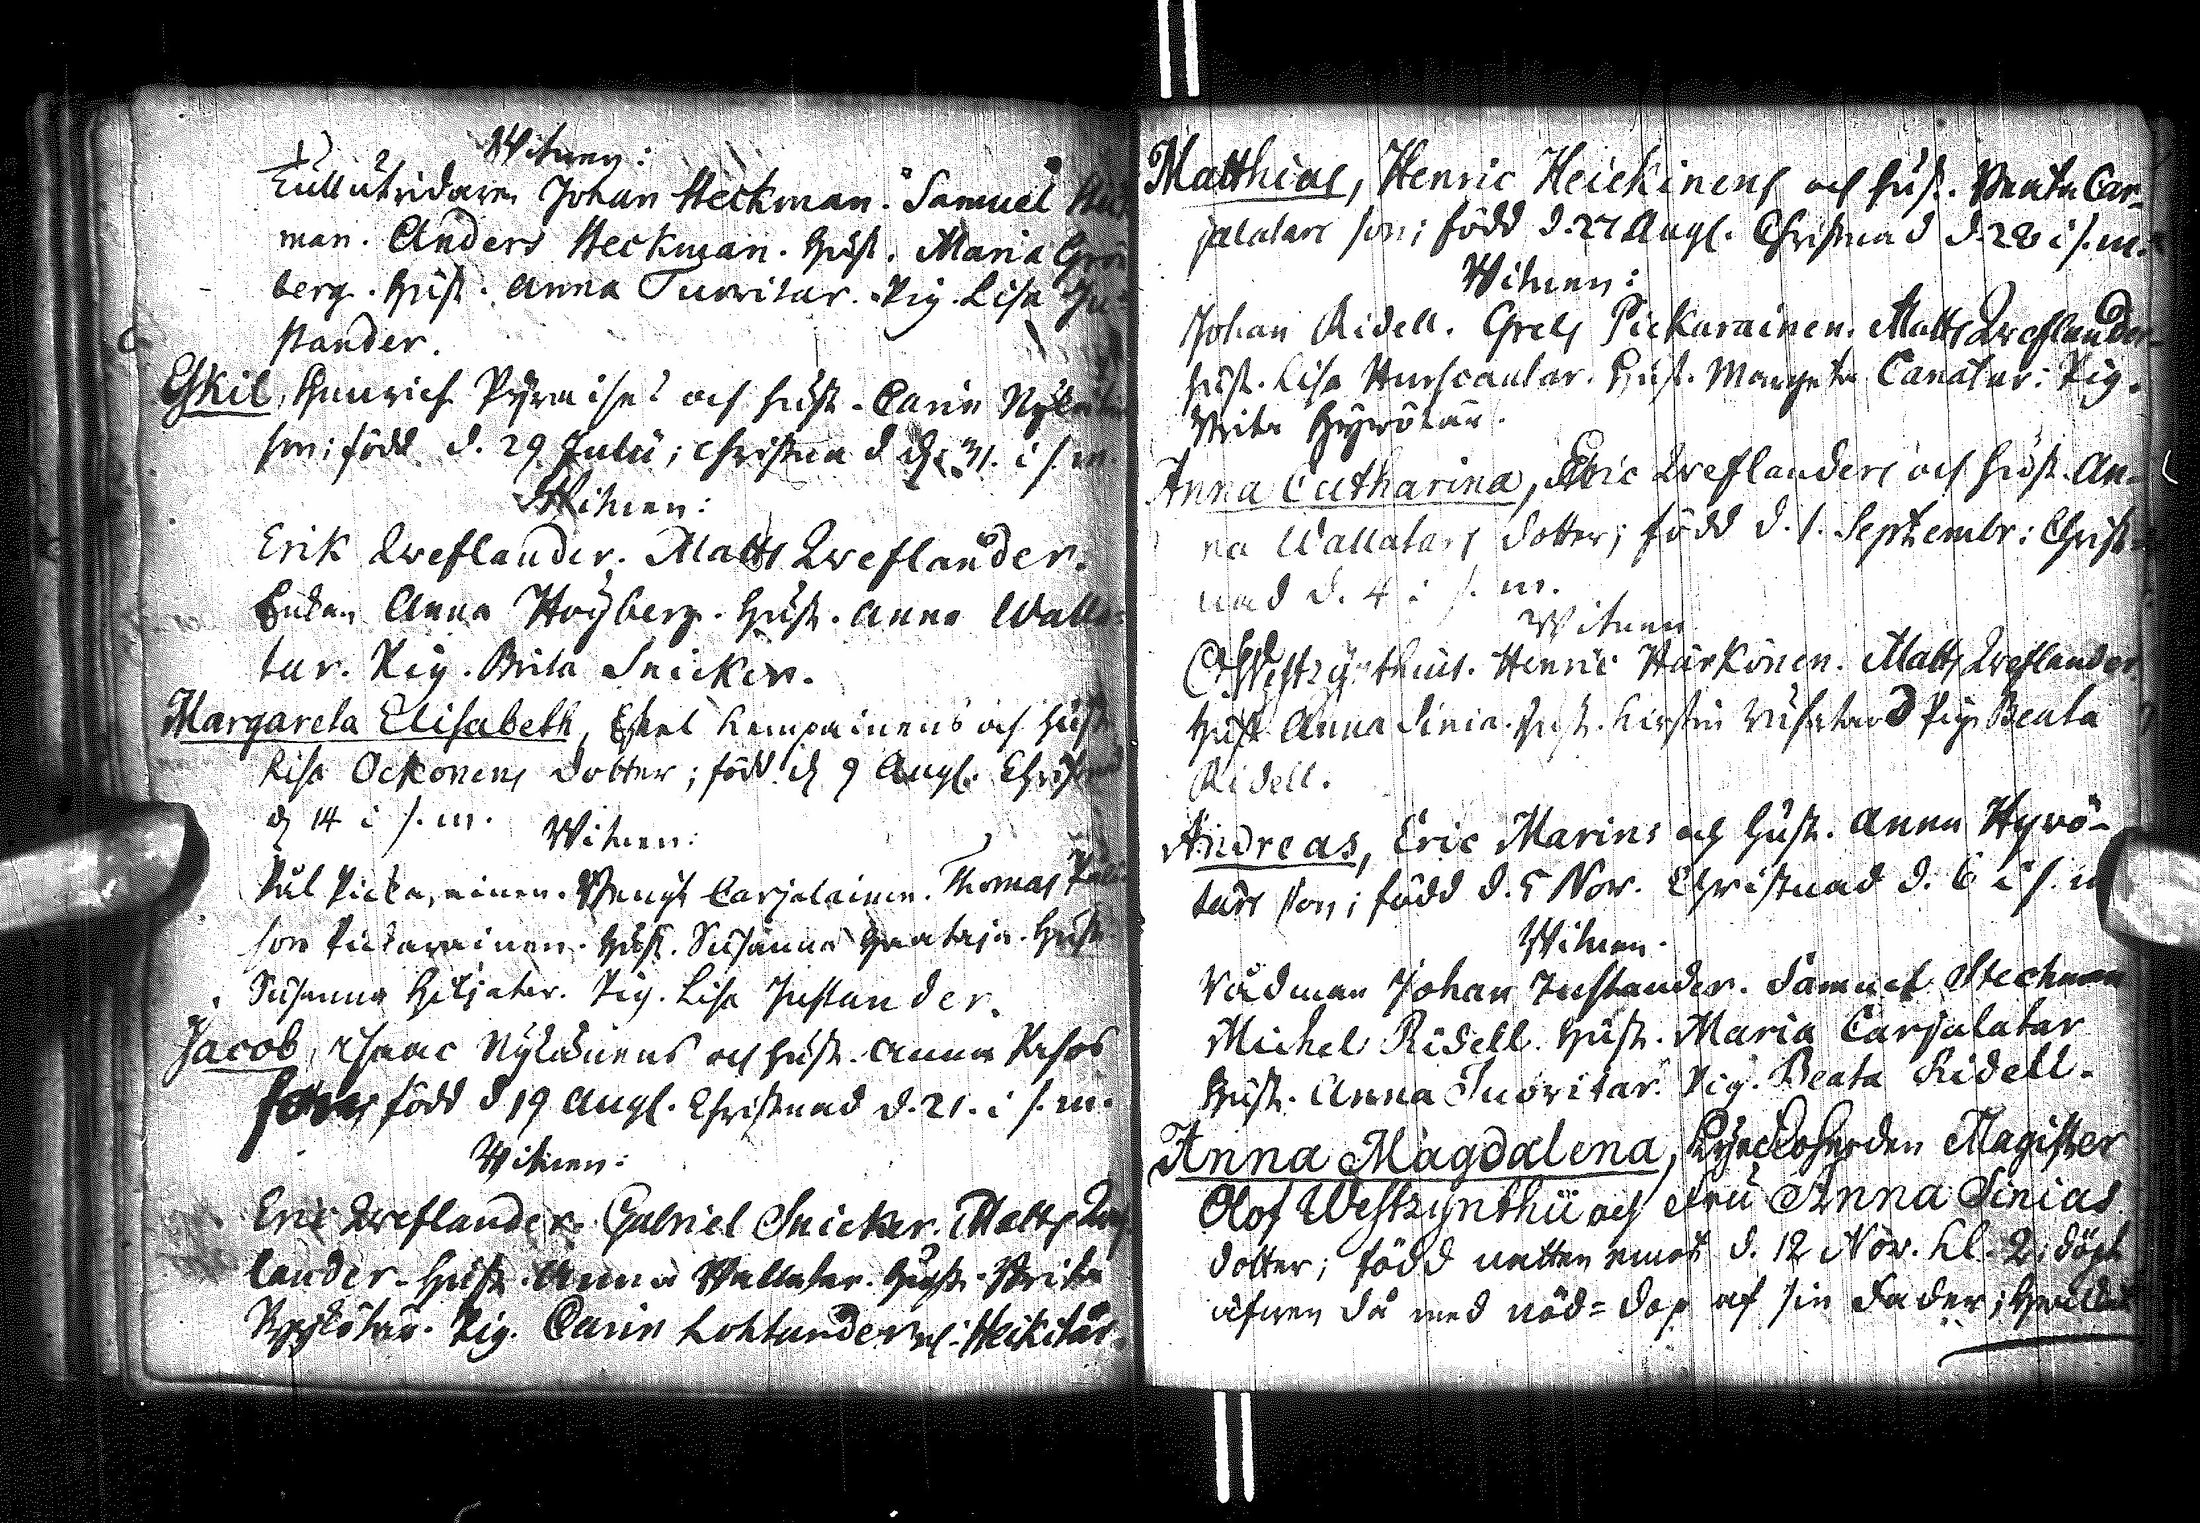 Witnen:
Tullutridaren Johan Steckman. Samuel
man. Anders Steckman. Hust. Maria
berg. Hust. Anna Tuoritar. Pig. Lisa Ju-
stander.
Eskil, Henrich och hust. Carin
son; född d. 29 Julii; Christnad d. 31. i s. m.
Witnen:
Erik Qveflander. Matts Qveflander.
Enkan Anna Höijberg. Hust. Anna Walla-
tar. Pig. Brita Snicker.
Margareta Elisabeth, Eskel Kempainens och Hust
Lisa Ockonens dotter; född d. 9 Augs. Christnad
d. 14 i s. m.
Witnen:
Pål Pickarainen. Bengt Carjalainen. Thomas
son Pickarainen. Hust. Susanna Haataja. Hust
Susanna Hiljatar. Pig. Lisa Justander.
Jacob, Isaac Nyläinens och hust. Anna
son; född d 19 Augs. Christnad d. 21. i s. m.
Witnen:
Eric Qveflander. Gabriel Snicker. Matts Qvef
lander. Hust. Anna Wallatar. Hust. Brita
Pig. Carin Lohtander
Matthias, Henric Heickinens och hust. Beata Car-
jalatars son; född d. 27 Augs. Christnad d. 28 i s. m.
Witnen:
Johan Ridell. Grels Pickarainen. Matts Qveflander
hust. Lisa Hust. Margeta Canatar. Pig.
Brita Hyvötär.
Anna Catharina, Eric Qveflanders och Hust. An-
na Wallatars dotter; född d. 1. Septembr: Christ-
nad d. 4 i s. m.
Witnen
Westzynthius. Henric Härkönen. Matts Qveflander.
Hust Anna Sinia. Hust. Kirstin Pig. Beata
Ridell.
Andreas, Eric Marins och Hust. Anna Hyvö-
tärs son; född d. 5 Nov. Christnad d. 6 i s. m
Witnen.
Rådman Johan Justander. Samuel Steckman
Michel Ridell. Hust. Maria Carjalatar
Hust. Anna Tuoritar. Pig. Beata Ridell.
Anna Magdalena, Kyrckoherden Magister
Olof Westzynthii och Fru Anna Sinias
dotter; född natten emot d. 12 Nov. kl. 2; döpt
äfwen då med nöd=dop af sin Fader;